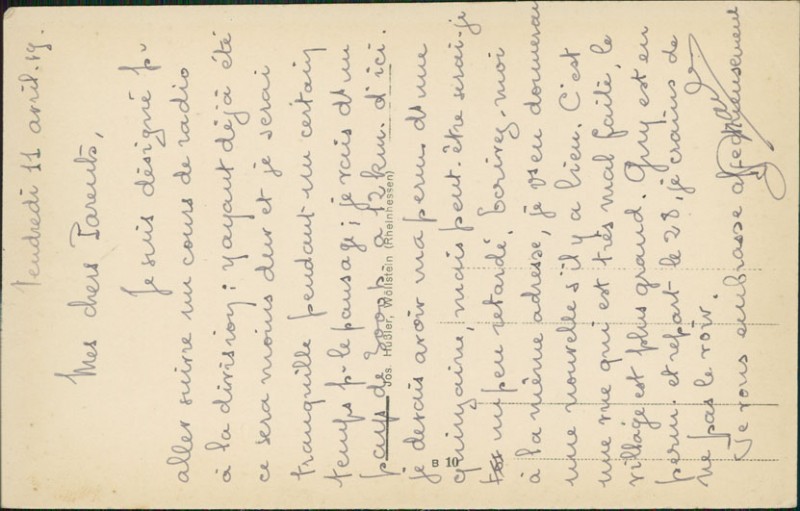 Vendredi 11 avril. 19.
Mes chers Parents,
Je suis désigné pr
aller suivre un cours de radio
à la division ; y ayant déjà été
ce sera moins dur et je serai
tranquille pendant un certain
temps pr le pansage ; je vais ds un
pays de à 12 km. d'ici.
je devais avoir ma perm. ds une
quinzaine, mais peut-être serai-je
un peu retardé. Ecrivez-moi
à la même adresse, je vs en donnerai
une nouvelle s'il y a lieu. C'est
une vue qui est très mal faite, le
village est plus grand. Guy est en
perm. et repart le 28, je crains de
ne pas le voir.
Je vous embrasse affectueusement
Jos. Hußler, Wöllstein (Rheinhessen)
B 10